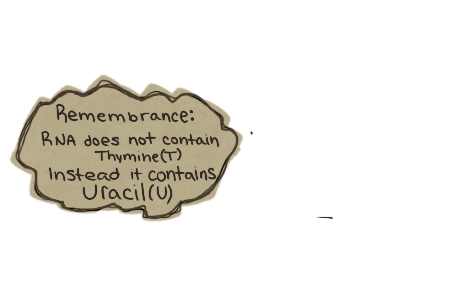 Remembrance:
RNA does not contain
Thymine(T)
Instead it contains
Uracil(U)